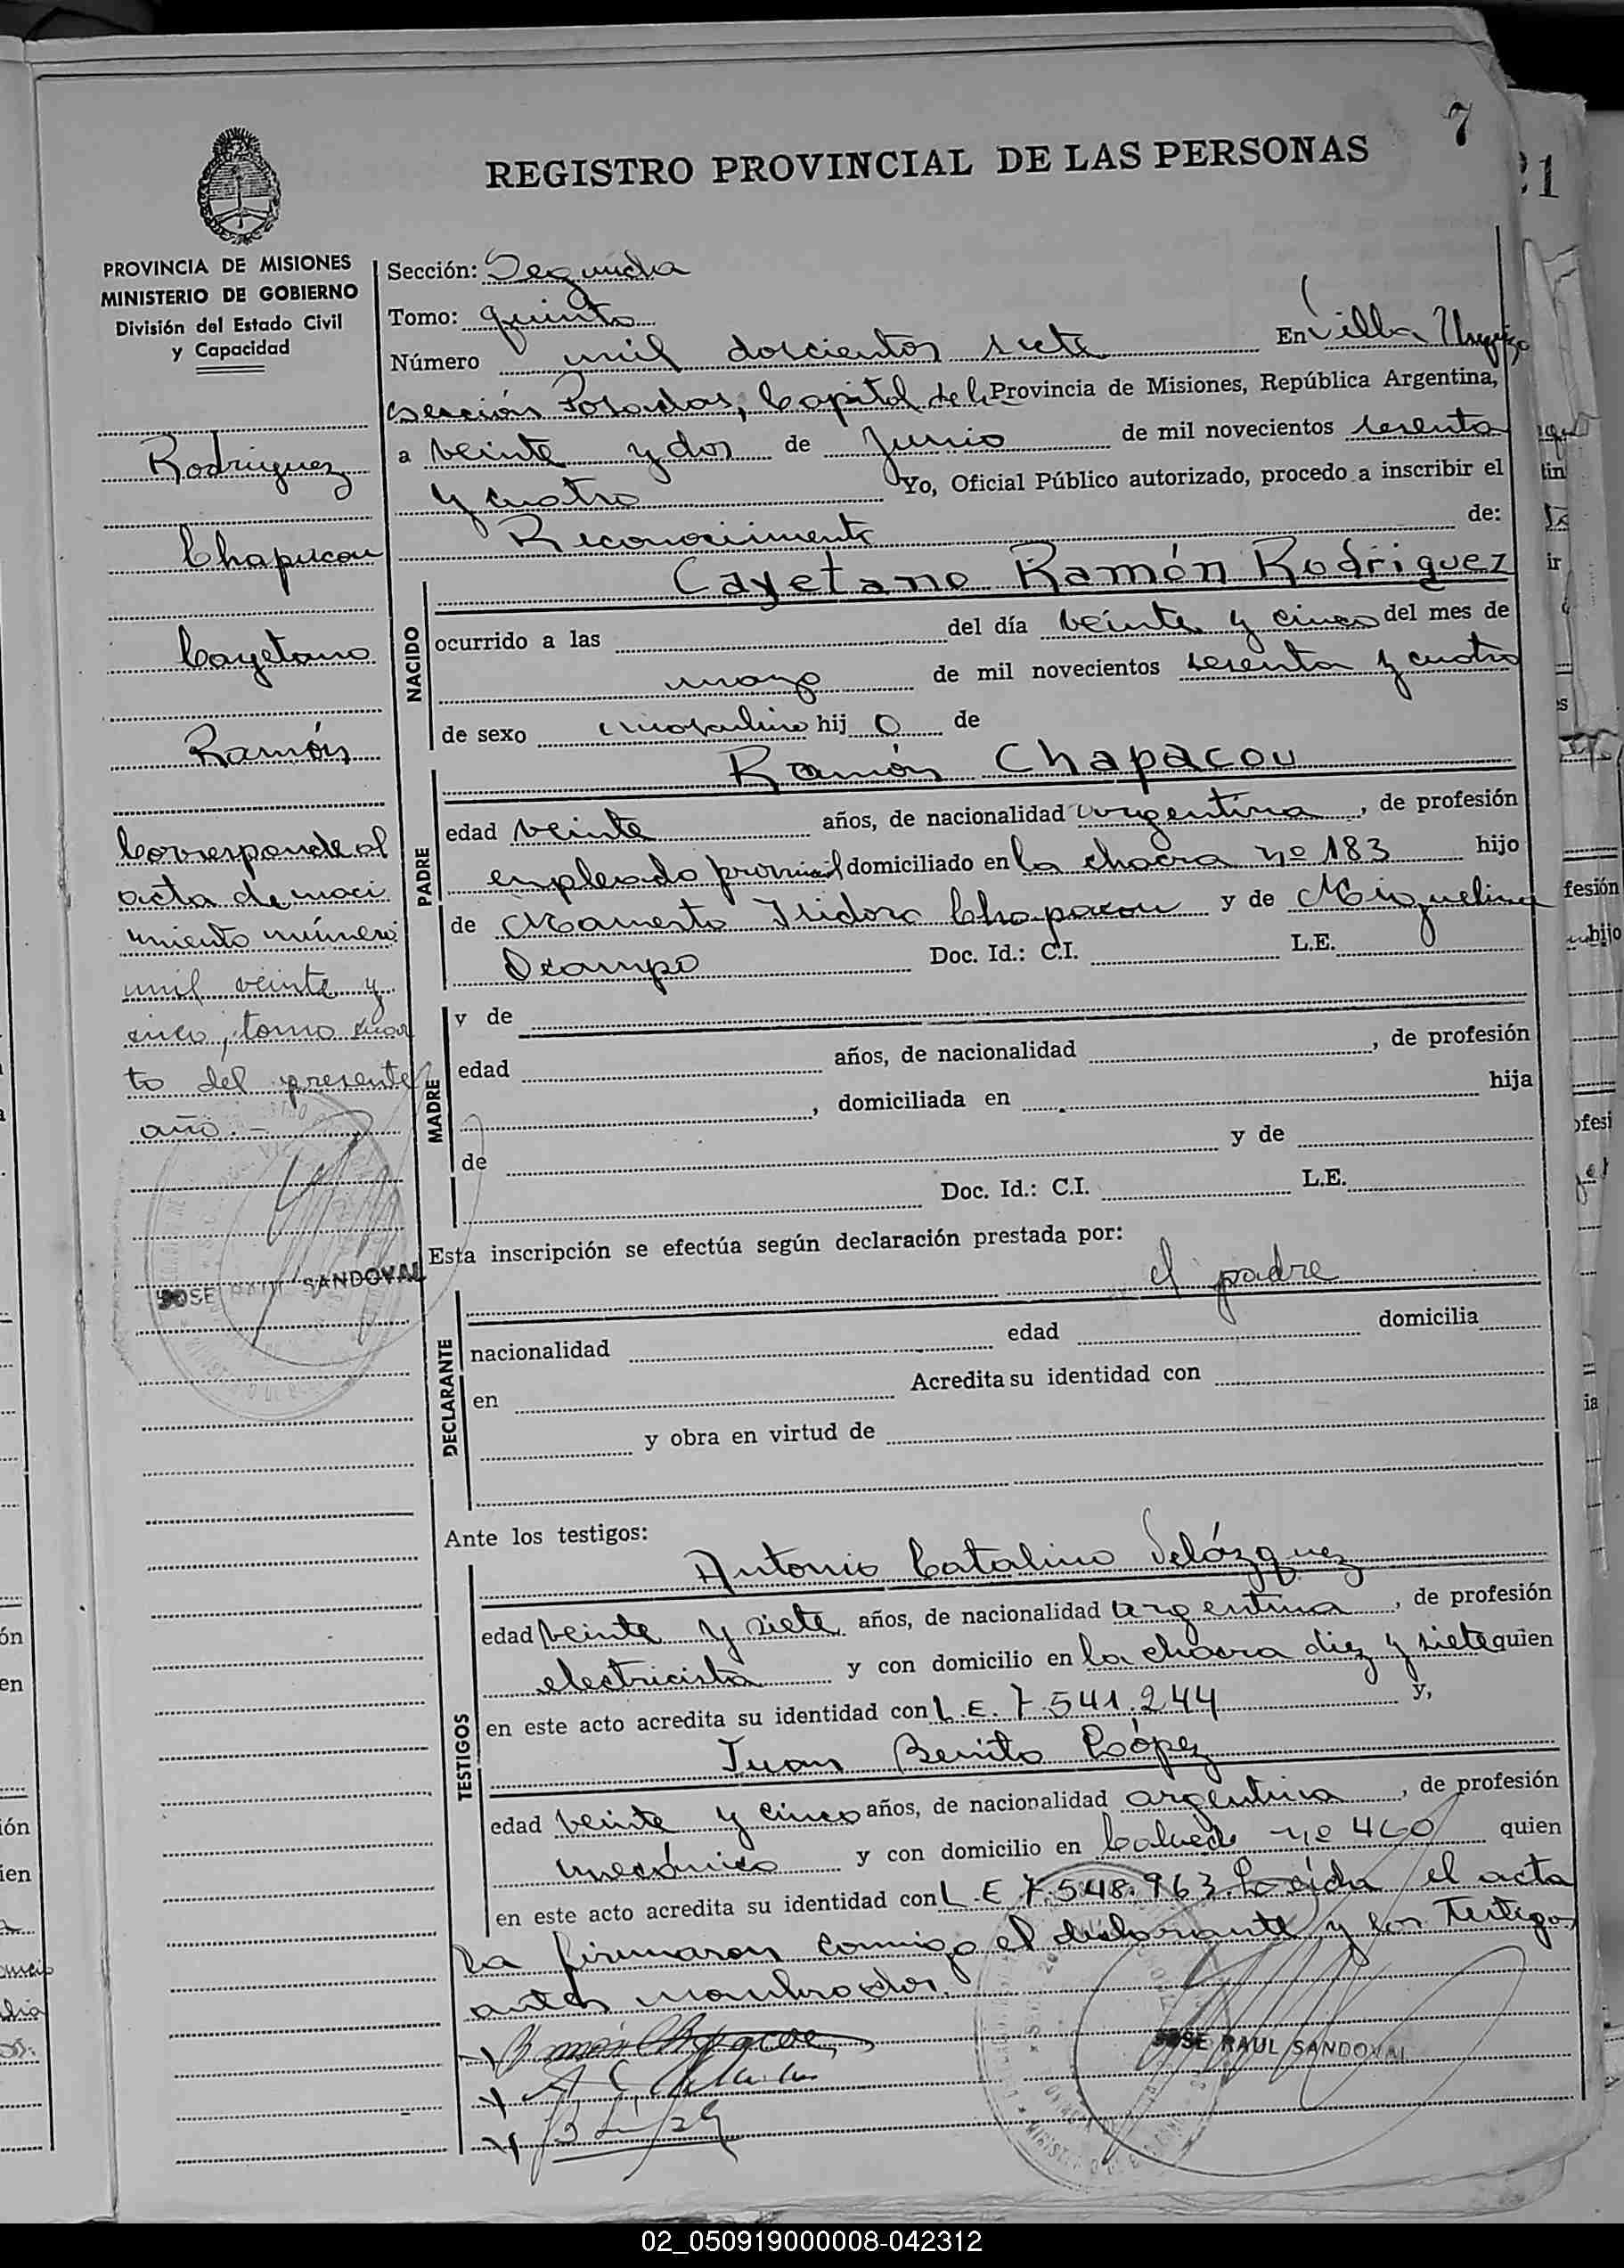 7
REGISTRO PROVINCIAL DE LAS PERSONAS
21
PROVINCIA DE MISIONES
MINISTERIO DE GOBIERNO
División del Estado Civil
y Capacidad
Rodriguez
Chapacou
Cayetano
Ramón
Corresponde al
acta de naci
miento número
mil veinte y
cinco, tomo cuar
to del presente
año.-
JOSE RAUL SANDOVAL
Sección: Segunda
Tomo: quinto
Número mil doscientos siete En Villa Urquiza
sección Posadas, Capital de la Provincia de Misiones, República Argentina,
a veinte y dos de Junio de mil novecientos sesenta
y cuatro Yo, Oficial Público autorizado, procedo a inscribir el
Reconocimiento de:
NACIDO
Cayetano Ramón Rodriguez
ocurrido a las del día veinte y cinco del mes de
mayo de mil novecientos sesenta y cuatro
de sexo masculino hij o de
PADRE
Ramón Chapacou
edad veinte años, de nacionalidad argentina, de profesión
empleado domiciliado en la chacra nº 183 hijo
de Mamerto Isidoro Chapacou y de Miguelina
Ocampo Doc. Id.: C.I. L.E.
MADRE
y de
edad años, de nacionalidad , de profesión
, domiciliada en hija
de y de
Doc. Id.: C.I. L.E.
Esta inscripción se efectúa según declaración prestada por:
el padre
DECLARANTE
nacionalidad edad domicilia
en Acredita su identidad con
y obra en virtud de
Ante los testigos:
TESTIGOS
Antonio Catalino Velázquez
edad veinte y siete años, de nacionalidad argentina, de profesión
electricista y con domicilio en la chacra diez y siete quien
en este acto acredita su identidad con L.E. 7.541.244 y,
Juan Benito López
edad veinte y cinco años, de nacionalidad argentina, de profesión
mecánico y con domicilio en nº 460 quien
en este acto acredita su identidad con L.E 7.548.963. Leída el acta
la firmaron conmigo el declarante y los Testigos
antes nombrados.
Ramón Chapacou
JOSE RAUL SANDOVAL
02_050919000008-042312